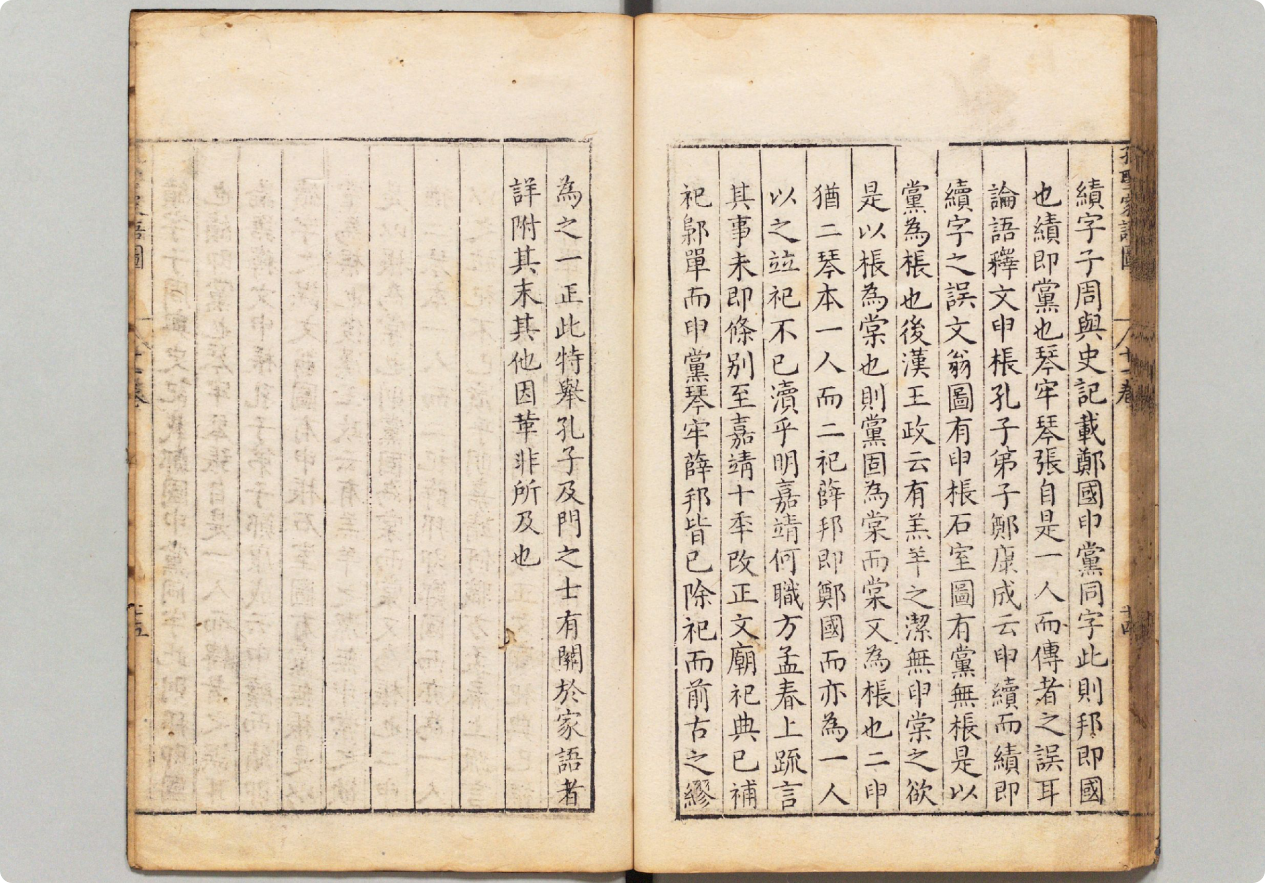 績字子周與史記載鄭國申黨同字此則邦即國
也績即黨也琴牢琴張自是一人而傳者之誤耳
論語釋文申棖孔子弟子鄭康成云申續而績即
續字之誤文翁圖有申棖石室圖有黨無棖是以
黨為棖也後漢王政云有羔羊之潔無申棠之欲
是以棖為棠也則黨固為棠而棠又為棖也二申
猶二琴本一人而二祀薛邦即鄭國而亦為一人
以之竝祀不已瀆乎明嘉靖何職方孟春上疏言
其事未即條別至嘉靖十秊改正文廟祀典已補
祀鄡單而申黨琴牢薛邦皆已除祀而前古之繆
為之一正此特舉孔子及門之士有關於家語者
詳附其末其他因革非所及也